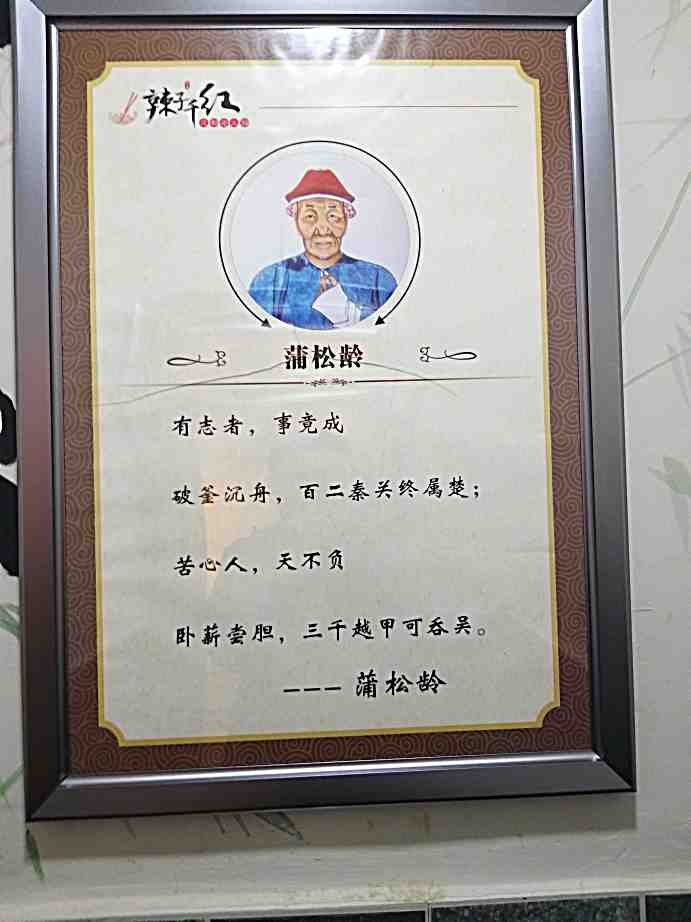 辣子千红
蒲松龄
有志者，事竟成
破釜沉舟，百二秦关终属楚；
苦心人，天不负
卧薪尝胆，三千越甲可吞吴。
--- 蒲松龄